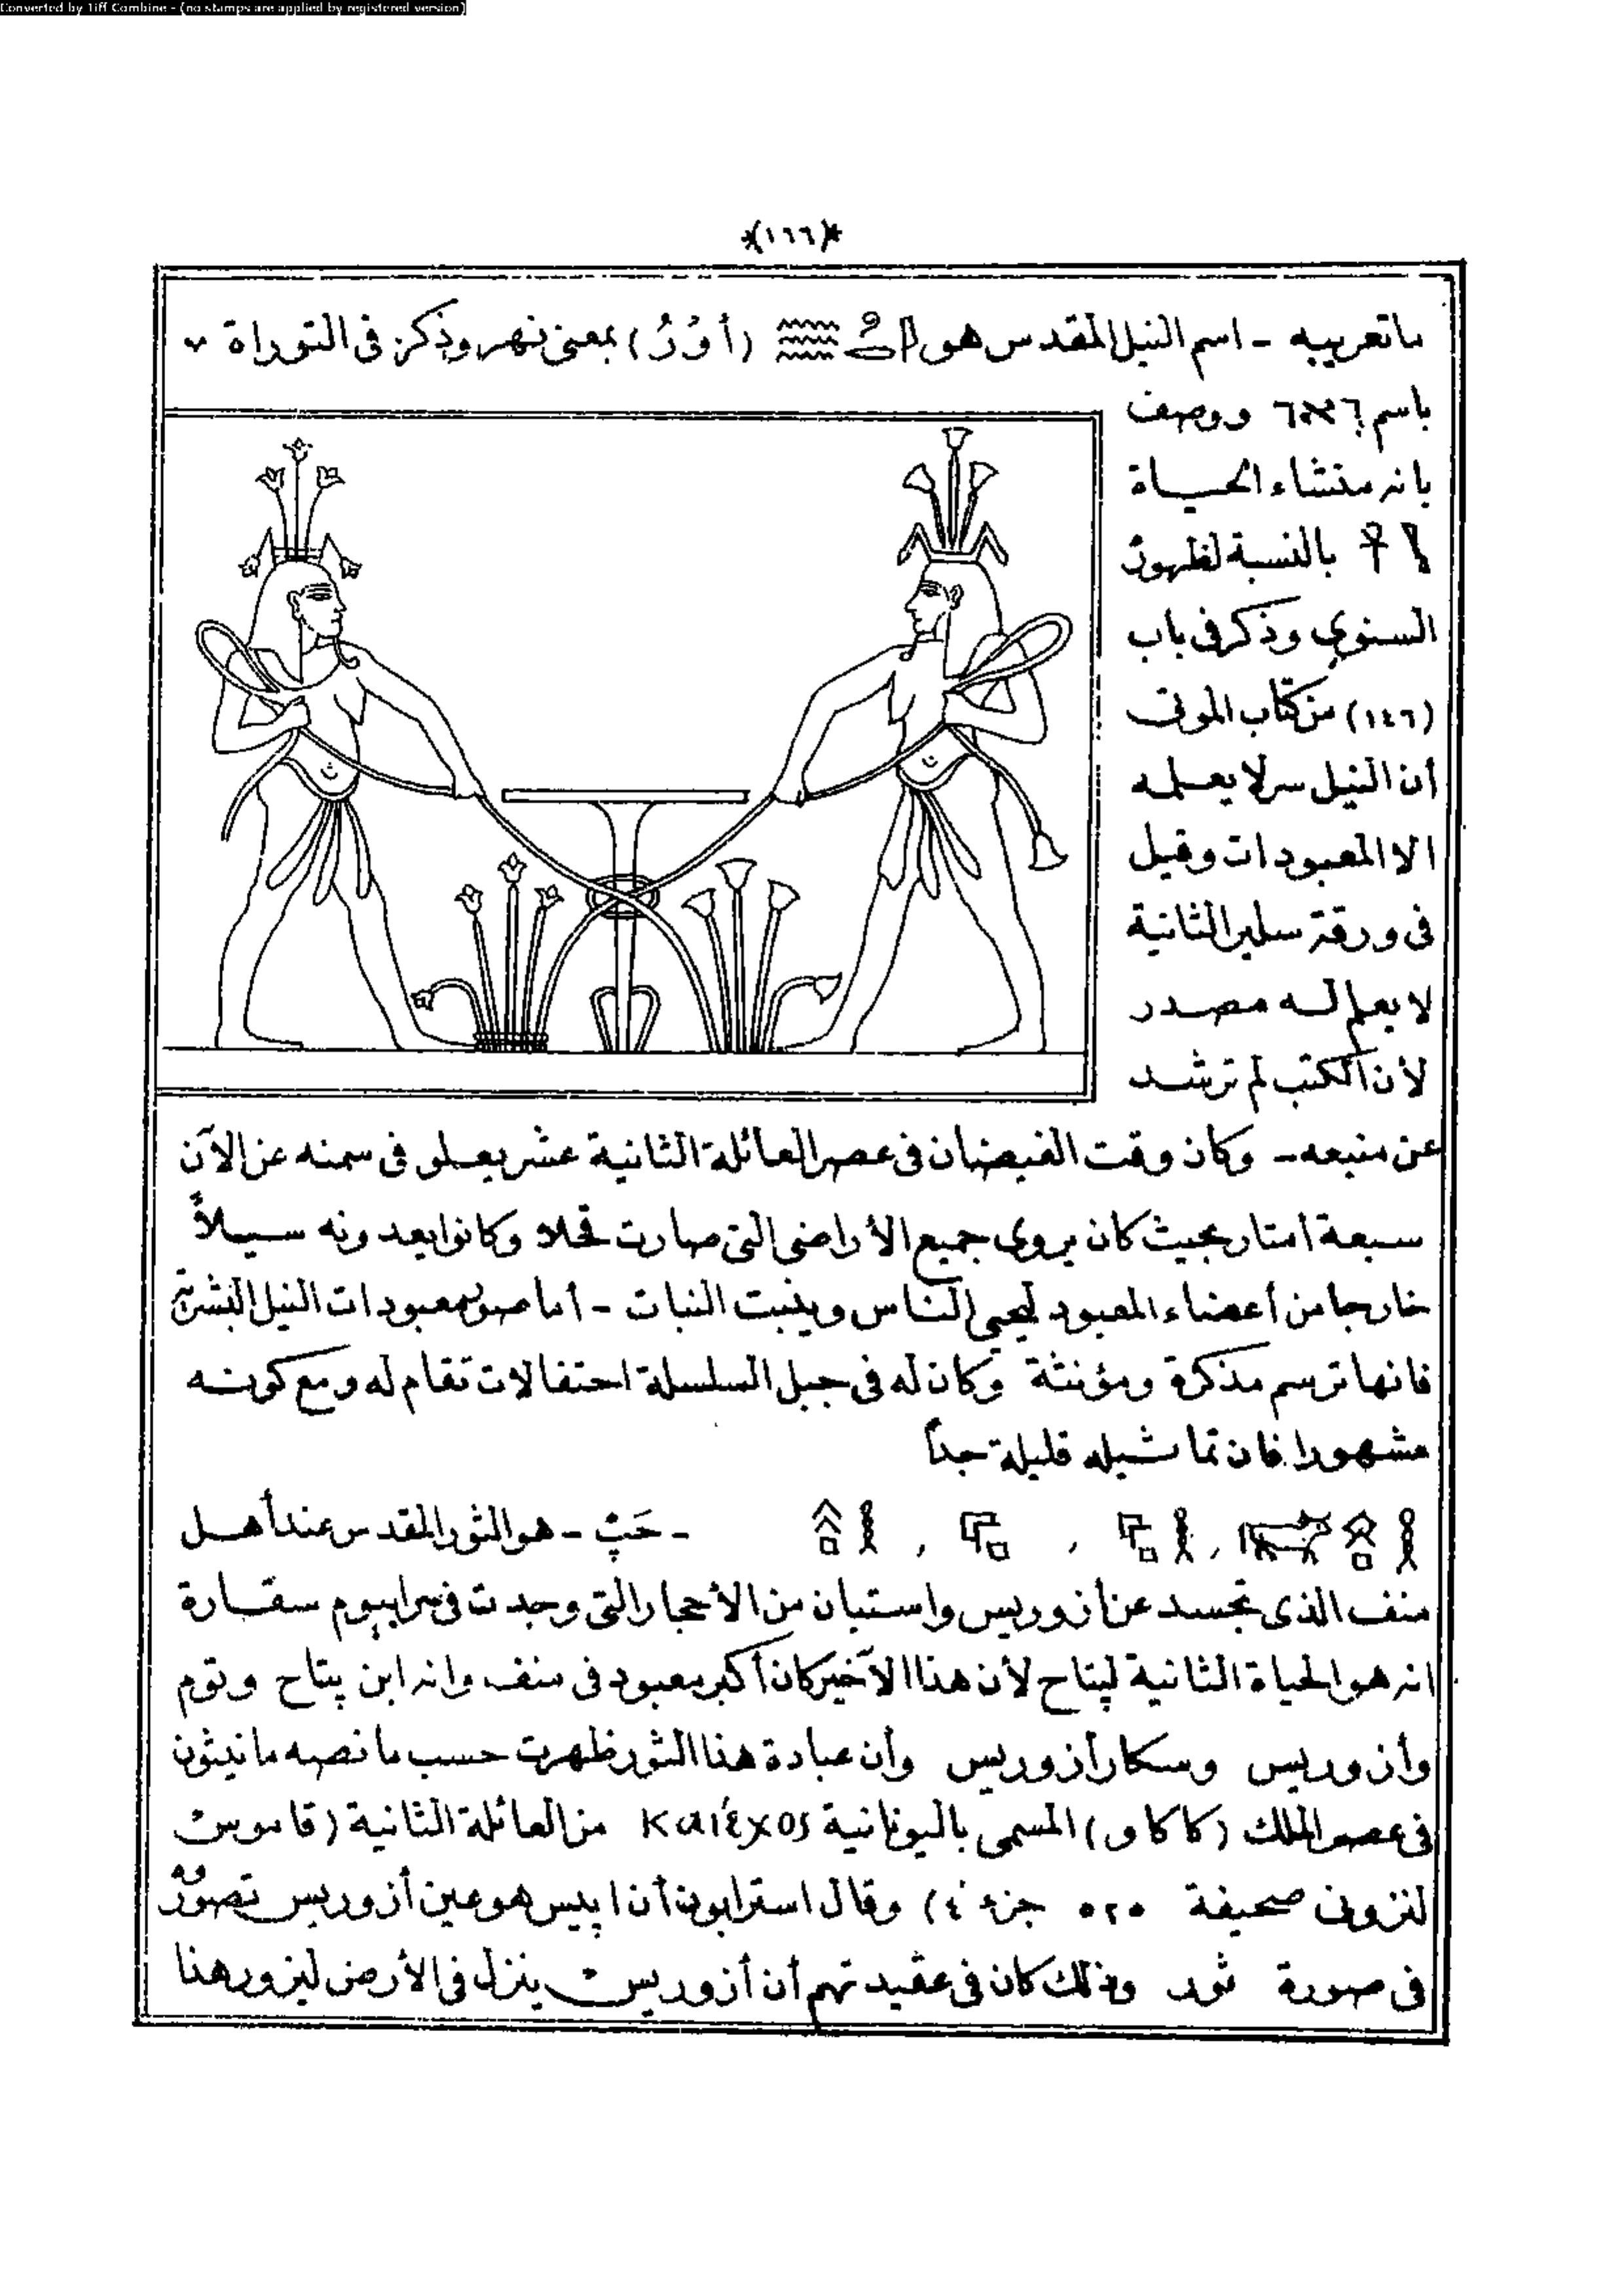 Converted by Tiff Combine - (no stamps are applied by registered version)
*(١٦٦)*
ما تعريبه - اسم النيل المقدس هو (أوُرُ) بمعنى نهر وذكر فى التوراة
باسم ووصف
بانه منشاء الحياة
بالنسبة لظهوره
السنوي وذكر فى باب
(١٤٦) من كتاب الموتى
أن النيل سر لا يعلمه
الا المعبودات وقيل
فى ورقة سلير الثانية
لا يعلم له مصدر
لأن الكتب لم ترشد
عن منبعه - وكان وقت الفيضان فى عصر العائلة الثانية عشر يعلو فى سمنه عن الآن
سبعة امتار بحيث كان يروى جميع الأراضى التى صارت قحلاء وكانوا يعدونه سيلاً
خارجا من أعضاء المعبود ليحيى الناس وينبت النبات - أما صور معبودات النيل البشرية
فانها ترسم مذكرة ومؤنثة وكان له فى جبل السلسلة احتفالات تقام له ومع كونه
مشهورا فان تماثيله قليلة جداً
- حَپْ - هو الثور المقدس عند أهل
منف الذى تجسد عن أزوريس واستبان من الأحجار التى وجدت فى سرابيوم سقارة
انه هو الحياة الثانية لپتاح لأن هذا الآخير كان أكبر معبود فى منف وانه ابن پتاح وتوم
وأزوريس وسكار أزوريس وأن عبادة هذا الثور ظهرت حسب ما نصبه مانيثون
فى عصر الملك (كاكاو) المسمى باليونانية Καιέχος من العائلة الثانية (قاموس
لنزونى صحيفة ٥٢٥ جزء ٤) وقال استرابون أن اپيس هو عين أزوريس تصوره
فى صورة ثور وذلك كان فى عقيدتهم أن أزوريس ينزل فى الأرض ليزور هذا